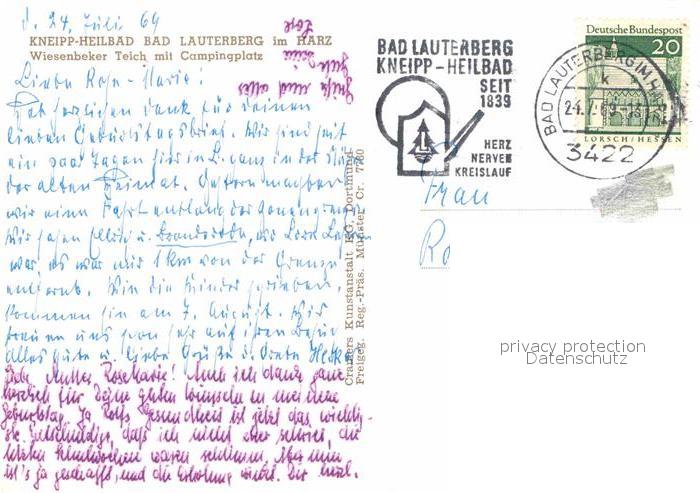 d. 24. Juli 69
KNEIPP-HEILBAD BAD LAUTERBERG im HARZ
Wiesenbeker Teich mit Campingplatz
Liebe Rose-Marie!
Hab herzlichen Dank für Deinen
lieben Geburtstagsbrief. Wir sind seit
ein paar Tagen hier in L. ganz in der Nähe
der alten Heimat. Gestern machten
wir eine Fahrt entlang der Zonengrenze
Wir sahen Ellrich u.
war, es war nur 1 km von der Grenze
entfernt. Wie die Kinder schrieben,
kommen sie am 7. August. Wir
freuen uns schon sehr auf ihren Besuch
Alles Gute u. liebe Grüße
Liebe Mutter Rosemarie! Auch ich danke ganz
herzlich für Deine guten Wünsche zu meinem
Geburtstag. Ja Rolfs Gesundheit ist jetzt das wichtig-
ste. Entschuldige, daß ich nicht eher schrieb, die
letzten Schulwochen waren schlimm. Aber nun
ist's ja geschafft, und die Erholung winkt. Dir
Grüße und alles
Gute
Cramers Kunstanstalt KG, Dortmund
Freigeg. Reg.-Präs. Münster Cr. 7760
BAD LAUTERBERG
KNEIPP-HEILBAD
SEIT
1839
HERZ
NERVEN
KREISLAUF
Deutsche Bundespost
20
LORSCH/HESSEN
BAD LAUTERBERG IM HARZ
24.7.69-18
3422
Frau
Ro
privacy protection
Datenschutz